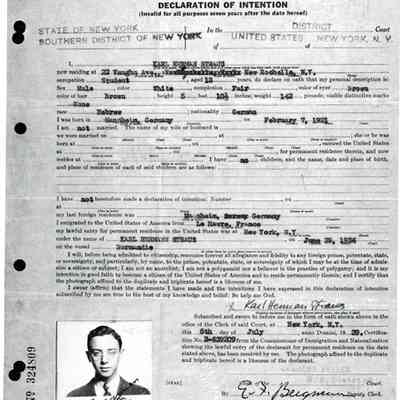 DECLARATION OF INTENTION
(Invalid for all purposes seven years after the date hereof)
STATE OF NEW YORK
SOUTHERN DISTRICT OF NEW YORK
In the DISTRICT Court
of UNITED STATES of NEW YORK, N. Y.
I, KARL HERMAN STRAUS
now residing at 22 Vaughn Ave., New Rochelle, N.Y.
occupation Student, aged 18 years, do declare on oath that my personal description is:
Sex Male color White complexion Fair color of eyes Brown
color of hair Brown height 5 feet inches; weight 142 pounds; visible distinctive marks
None
race Hebrew nationality German
I was born in Mannheim, Germany on February 7, 1921
I am not married. The name of my wife or husband is
we were married on at she or he was
born at on entered the United States
at on for permanent residence therein, and now
resides at I have no children, and the name, date and place of birth,
and place of residence of each of said children are as follows:
I have not heretofore made a declaration of intention: Number on
at
my last foreign residence was Mannheim, Germany
I emigrated to the United States of America from Le Havre, France
my lawful entry for permanent residence in the United States was at New York, N.Y.
under the name of KARL HERMAN STRAUS on June 29,
on the vessel Normandie
I will, before being admitted to citizenship, renounce forever all allegiance and fidelity to any foreign prince, potentate, state,
or sovereignty, and particularly, by name, to the prince, potentate, state, or sovereignty of which I may be at the time of admis-
sion a citizen or subject; I am not an anarchist; I am not a polygamist nor a believer in the practice of polygamy; and it is my
intention in good faith to become a citizen of the United States of America and to permanently reside therein; and I certify that
the photograph affixed to the duplicate and triplicate hereof is a likeness of me.
I swear (affirm) that the statements I have made and the intentions I have expressed in this declaration of intention
subscribed by me are true to the best of my knowledge and belief: So help me God.
Karl Herman Straus
Subscribed and sworn to before me in the form of oath shown above in the
office of the Clerk of said Court, at New York, N.Y.
this 5th day of July anno Domini, 19 39. Certification
No. from the Commissioner of Immigration and Naturalization
showing the lawful entry of the declarant for permanent residence on the date
stated above, has been received by me. The photograph affixed to the duplicate
and triplicate hereof is a likeness of the declarant.
[SEAL]
By Deputy Clerk.
Nº 324809